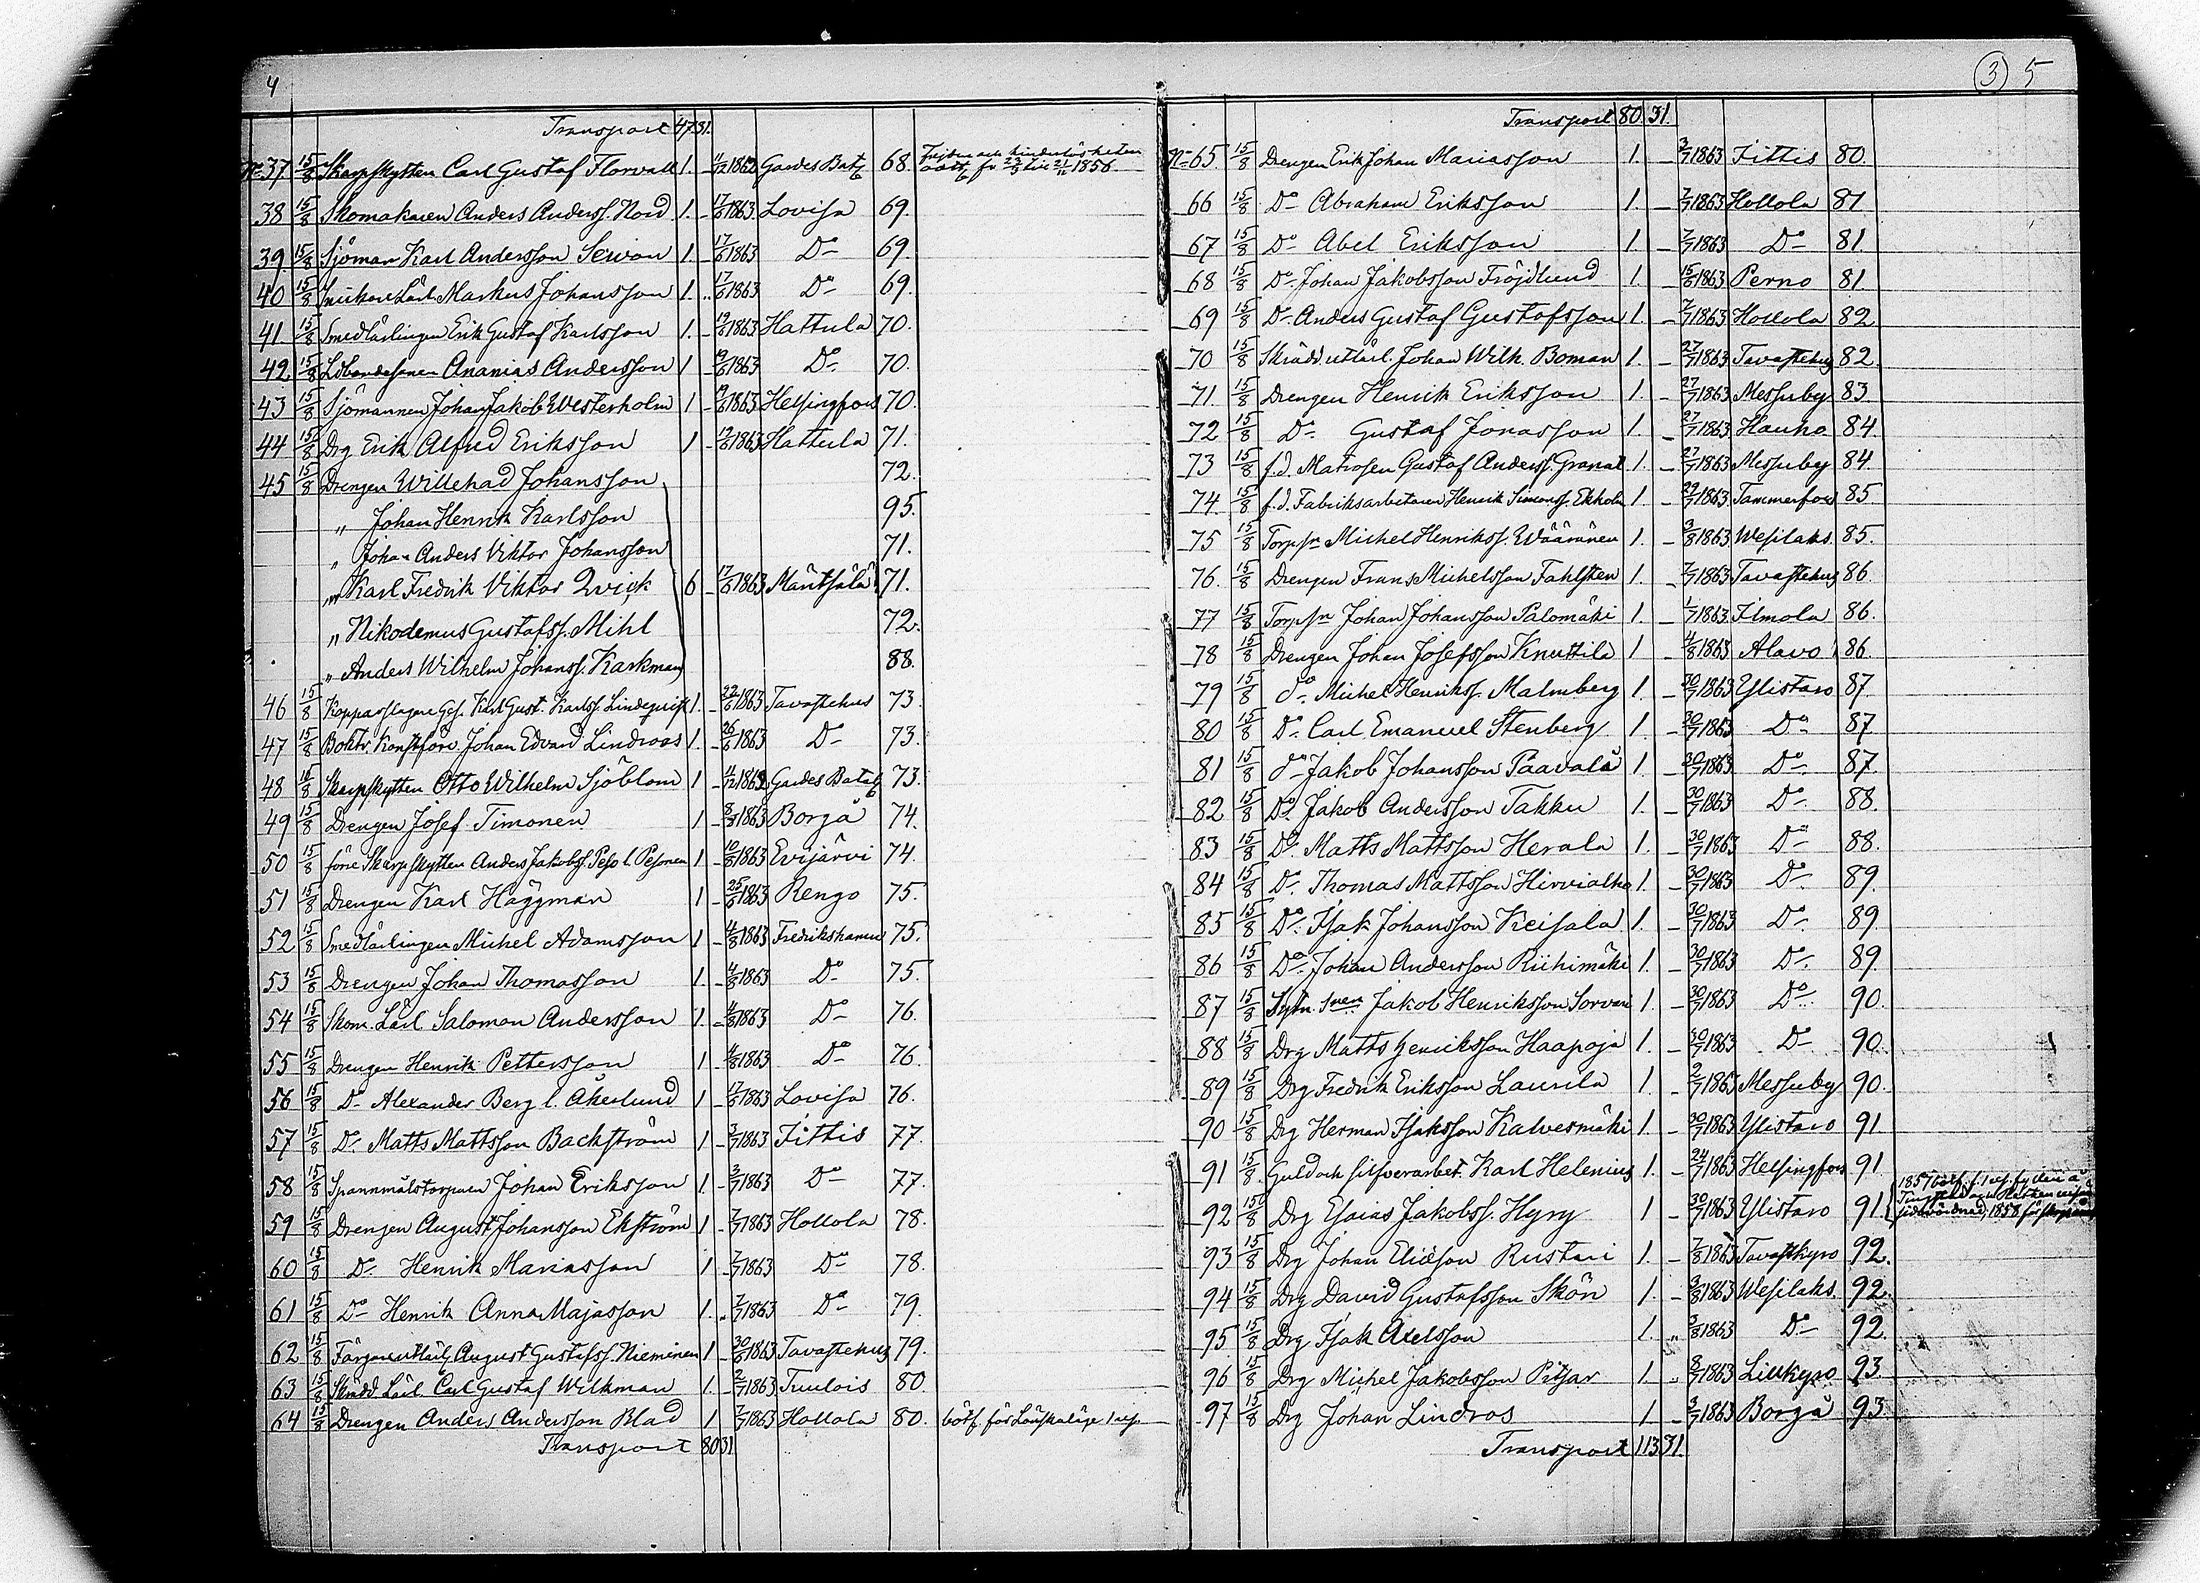 4
Transport 47 31.
No 37 15/8 Skarpskytten Carl Gustaf Florvall 1. - 11/12 1862 Gardes Bat. 68. fr 23/9 till 21/11 1856.
38 15/8 Skomakaren Anders Anderss. Nord 1. - 17/6 1863 Lovisa 69.
39 15/8 Sjöman Karl Andersson Servon 1. - 17/6 1863 Do 69.
40 15/8 Snickare Lärl. Markus Johansson 1. " 17/6 1863 Do 69.
41 15/8 Smedlärlingen Erik Gustaf Karlsson 1. - 19/6 1863 Hattula 70.
42 15/8 Ananias Andersson 1 - 19/6 1863 Do 70.
43 15/8 Sjömannen Johan Jakob Westerholm 1 - 19/6 1863 Helsingfors 70.
44 15/8 Drg Erik Alfred Eriksson 1 - 19/6 1863 Hattula 71.
45 15/8 Drengen Willehad Johansson 72.
" Johan Henrik Karlsson 95.
" Johan Anders Viktor Johansson 71.
" Karl Fredrik Viktor Qvick 6 - 17/6 1863 Mäntsälä 71.
" Nikodemus Gustafss. Mihl 72.
" Anders Wilhelm Johanss. Karkman 88.
46 15/8 Kopparslagare Ges. Karl Gust. Karlss. Lindeqvist 1. - 22/6 1863 Tavastehus 73.
47 15/8 Boktr. Konstförv. Johan Edvard Lindroos 1. - 26/6 1863 Do 73.
48 15/8 Skarpskytten Otto Wilhelm Sjöblom 1 - 11/12 1862 Gardes Batal. 73.
49 15/8 Drengen Josef Timonen 1 - 8/8 1863 Borgå 74.
50 15/8 förre Skarpskytten Anders Jakobss. Peso l. Pesonen 1 - 10/8 1863 Evijärvi 74.
51 15/8 Drengen Karl Häggman 1 - 25/6 1863 Rengo 75.
52 15/8 Smedlärlingen Michel Adamsson 1 - 4/8 1863 Fredrikshamn 75.
53 15/8 Drengen Johan Thomasson 1. - 4/8 1863 Do 75.
54 15/8 Skom. Lärl Salomon Andersson 1. - 4/8 1863 Do 76.
55 15/8 Drengen Henrik Pettersson 1 - 4/8 1863 Do 76.
56 15/8 Do Alexander Berg l. Åkerlund 1 - 17/6 1863 Lovisa 76.
57 15/8 Do Matts Mattsson Backström 1 - 3/7 1863 Iittis 77.
58 15/8 Spannmålstorparen Johan Eriksson 1. - 3/7 1863 Do 77.
59 15/8 Drengen August Johansson Ekström 1 - 7/7 1863 Hollola 78.
60 15/8 Do Henrik Mariasson 1 - 7/7 1863 Do 78.
61 15/8 Do Henrik Anna Majasson 1. " 7/7 1863 Do 79.
62 15/8 August Gustafss. Nieminen 1 - 30/6 1863 Tavastehus 79.
63 15/8 Skrädd Lärl. Carl Gustaf Wilkman 1. - 2/7 1863 Tuulois 80.
64 15/8 Drengen Anders Andersson Blad 1 7/7 1863 Hollola 80. bötf. för
Transport 80 31
(3) 5
Transport 80. 31.
No 65 15/8 Drengen Erik Johan Mariasson 1. - 3/7 1863 Iittis 80.
66 15/8 Do Abraham Eriksson 1. - 7/7 1863 Hollola 81
67 15/8 Do Abel Eriksson 1 - 7/7 1863 Do 81.
68 15/8 Do Johan Jakobsson Fröjdlund 1. - 15/6 1863 Perno 81.
69 15/8 Do Anders Gustaf Gustafsson 1. - 7/7 1863 Hollola 82
70 15/8 Skrädd. utlärl. Johan Wilh. Boman 1. - 27/7 1863 Tavastehus 82.
71 15/8 Drengen Henrik Eriksson 1. - 27/7 1863 Messuby 83
72 15/8 Do Gustaf Jonasson 1. - 27/7 1863 Hauho 84.
73 15/8 f.d. Matrosen Gustaf Anderss. Granat 1. - 27/7 1863 Messuby 84
74 15/8 f.d. Fabriksarbetaren Henrik Simonss. Ekholm 1 - 29/7 1863 Tammerfors 85
75 15/8 Torp.sn Michel Henrikss. Wääränen 1. - 3/8 1863 Wesilaks. 85.
76. 15/8 Drengen Frans Michelsson Fahlsten 1. - 7/7 1863 Tavastehus 86.
77 15/8 Torp.sn Johan Johansson Palomäki 1. - 1/7 1863. Ilmola 86.
78 15/8 Drengen Johan Josefsson Knuttila 1 - 4/8 1863 Alavo 86.
79 15/8 Do Michel Henrikss. Malmberg 1. - 30/7 1863 Ylistaro 87.
80 15/8 Do Carl Emanuel Stenberg 1. - 30/7 1863 Do 87
81 15/8 Do Jakob Johansson Paavala 1. - 30/7 1863 Do 87.
82 15/8 Do Jakob Andersson Takku 1. - 30/7 1863 Do 88.
83 15/8 Do Matts Mattsson Herala 1. - 30/7 1863 Do 88.
84 15/8 Do Thomas Mattsson Hirvialho 1. - 30/7 1863 Do 89.
85 15/8 Do Isak Johansson Keisala 1. - 30/7 1863 Do 89.
86 15/8 Do Johan Andersson Riihimäki 1. - 30/7 1863 Do 89.
87 15/8 Jakob Henriksson Sorvari 1 - 30/7 1863 Do 90.
88 15/8 Drg Matts Henricksson Haapoja 1. - 30/7 1863 Do 90.
89 15/8 Drg Fredrik Eriksson Laurila 1 - 2/7 1863 Messuby 90.
90 15/8 Drg Herman Isaksson Kalvesmäki 1. - 30/7 1863 Ylistaro 91.
91 15/8 Guld och silfverarbet. Karl Helenius 1. - 24/7 1863 Helsingfors 91
92 15/8 Drg Esaias Jakobss. Hyry 1 - 30/7 1863 Ylistaro 91
1857
1858
93 15/8 Drg Johan Eliasson Rustari 1. - 7/8 1863 Tavastkyro 92.
94 15/8 Drg David Gustafsson Skön 1. - 3/8 1863 Wesilaks. 92.
95 15/8 Drg Isak Axelsson 1. " 3/8 1863 Do 92.
96 15/8 Drg Michel Jakobsson Pitjar 1 " 8/7 1863 Lillkyro 93
97 15/8 Drg Johan Lindros 1 - 3/7 1863 Borgå 93.
Transport 113 31.